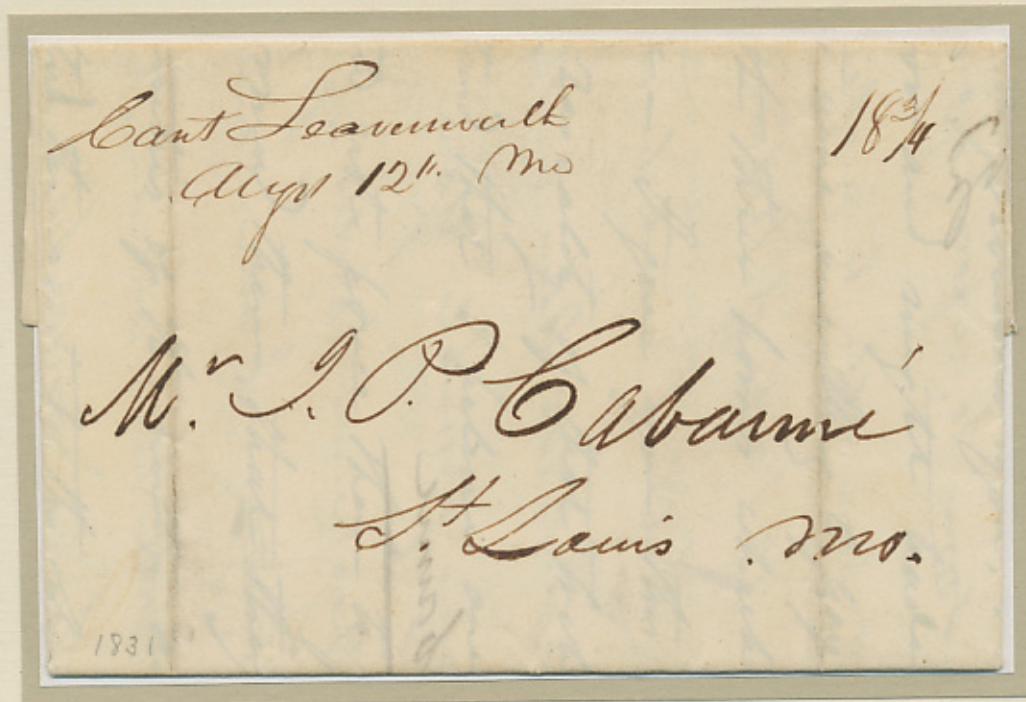 Cant Leavenworth
18 3/4
Augst 12th Mo
Mr. J. P. Cabanné
St. Louis Mo.
1831